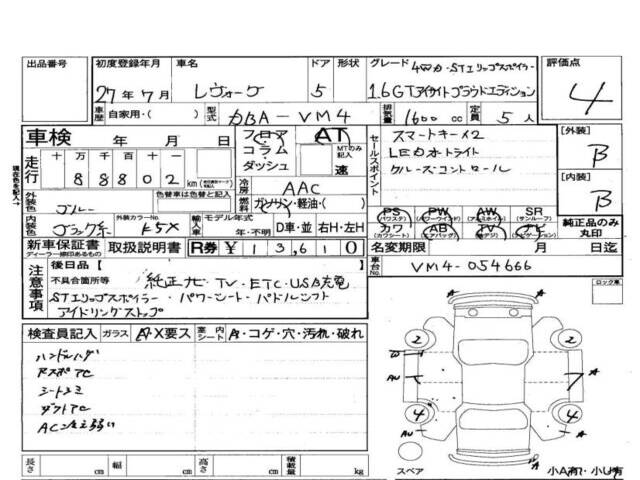 出品番号
初度登録年月 27年7月
車名 レヴォーグ
ドア 5 形状
グレード 4WD・STIリップスポイラー
1.6GTアイサイトプラウドエディション
評価点 4
車歴 自家用・( )
型式 DBA-VM4
排気量 1600 cc
定員 5人
車検 年 月 日
フロア コラム・ダッシュ
AT
MTのみ記入
速
走行 十 万 千 百 十 一
88802 km
冷房 AAC
燃料 ガソリン・軽油・( )
セールスポイント
スマートキーX2
LEDオートライト
クルーズコントロール
【外装】 B
【内装】 B
外装色 ブルー
色替車は色替と記入
内装色 ブラック系
外装カラーNo. K5X
輸入車 モデル年式 年 D車・並 右H・左H
PS (パワステ) PW (パワーウインド) AW (アルミホイル) SR (サンルーフ)
カワ (カワシート) AB (エアバッグ) TV (テレビ) ナビ (ナビゲーション)
純正品のみ丸印
新車保証書 ディーラー捺印あるもの
取扱説明書
R券 ¥13,610
名変期限 月 日迄
車台No. VM4-054666
注意事項
後日品( )
不具合箇所等 純正ナビ・TV・ETC・USB充電
STIリップスポイラー・パワーシート・パドルシフト
アイドリングストップ
ロック車
検査員記入 ガラス AX要ス 室内シート A・コゲ・穴・汚れ・破れ
ハンドルハゲ
シートスミ
ダクトAC
2 2
W A
AU
4 4
AU A
A
長さ cm 幅 cm 高さ cm 積載量 kg
スペア
小A有・小U有